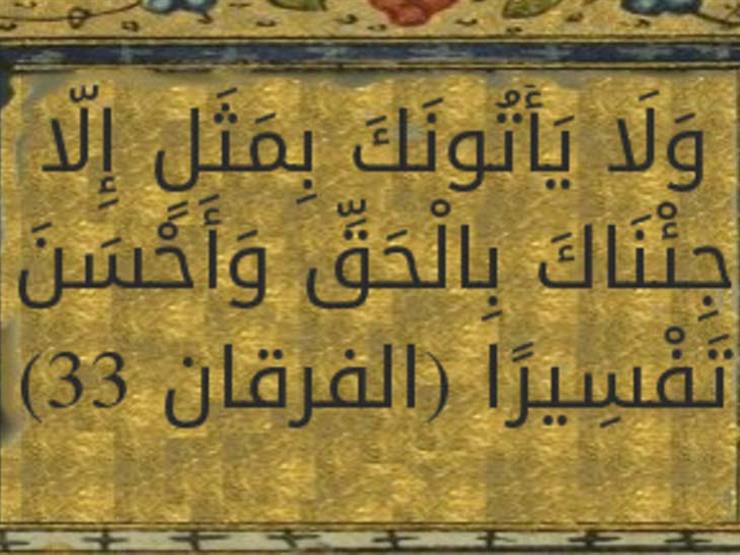 وَلَا يَأْتُونَكَ بِمَثَلٍ إِلَّا
جِئْنَاكَ بِالْحَقِّ وَأَحْسَنَ
تَفْسِيرًا (الفرقان 33)